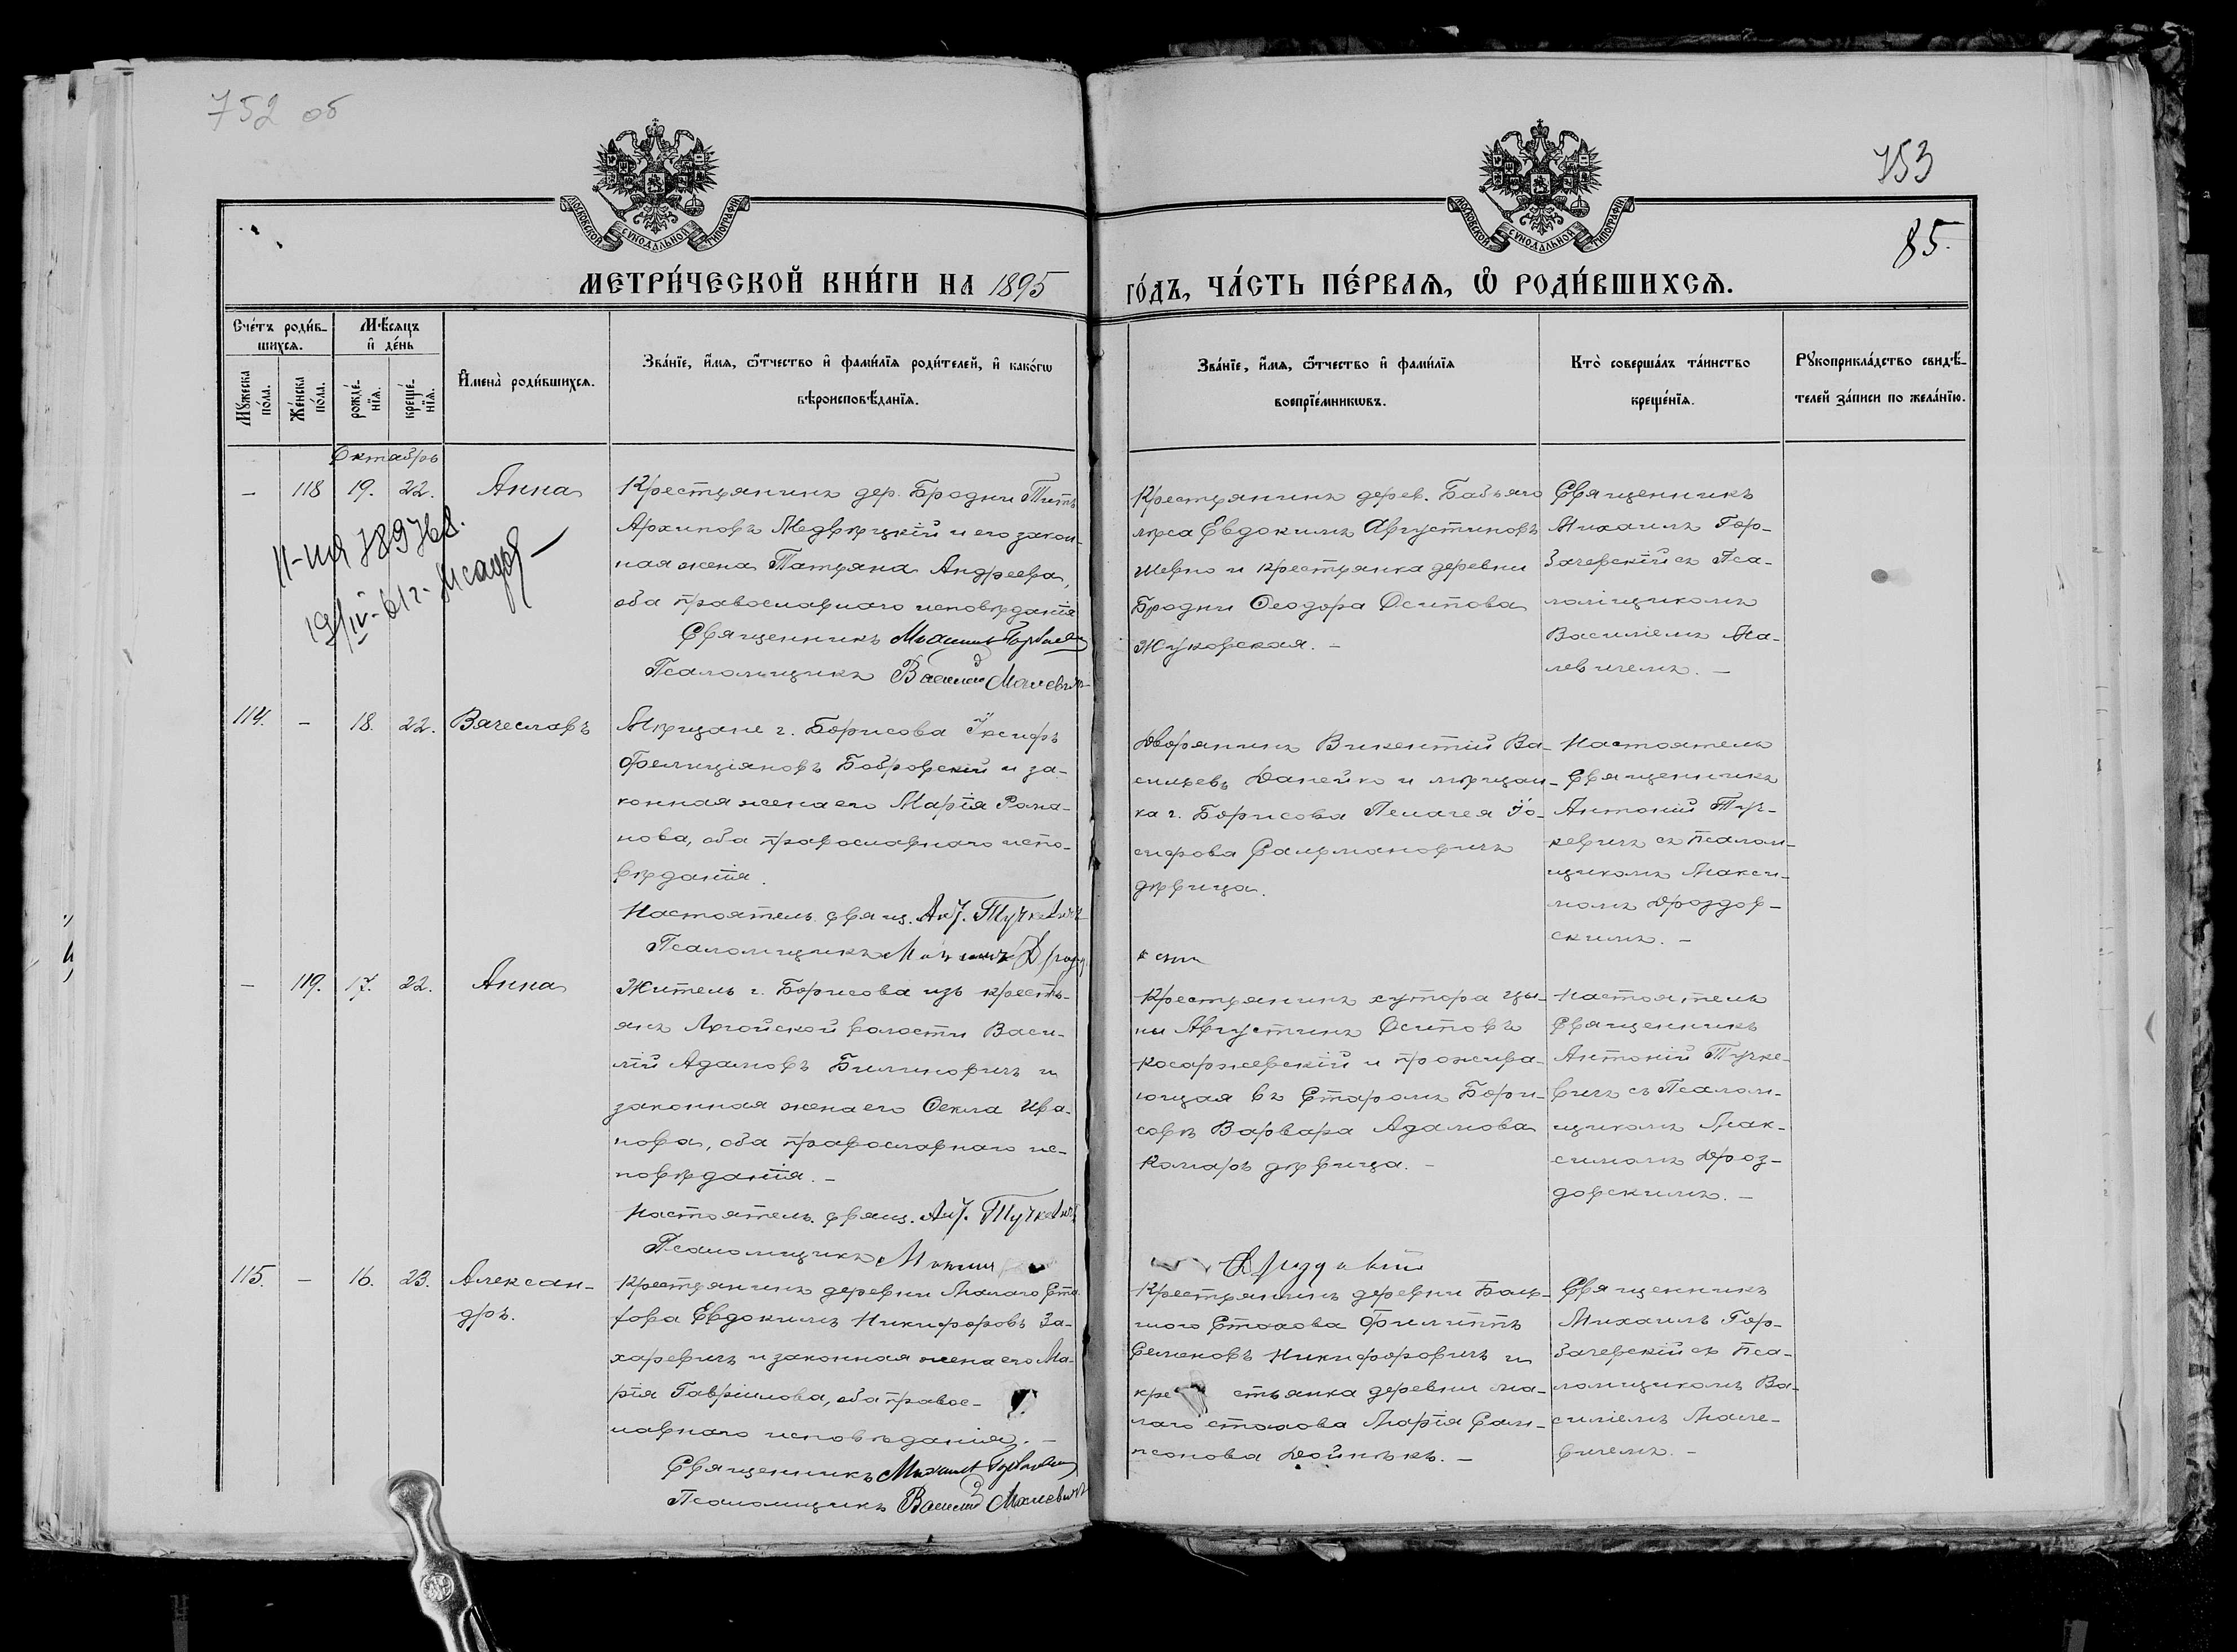 752 об
753
85.
МОСКОВСКОЙ СУНОДАЛЬНОЙ ТИПОГРАФІИ
МОСКОВСКОЙ СУНОДАЛЬНОЙ ТИПОГРАФІИ
МЕТРИ́ЧЕСКОЙ КНИ́ГИ НА 1895
ГО́ДЪ, ЧА́СТЬ ПЕ́РВАѦ, Ѿ РОДИ́ВШИХСѦ.
Сче́тъ роди́в-
шихсѧ.
Мѣ́сѧцъ
и҆ де́нь
Му́жеска
по́ла.
Же́нска
по́ла.
рожде́-
нїѧ.
креще́-
нїѧ.
И҆мена̀ роди́вшихсѧ.
Зва́нїе, и҆́мѧ, ѻ҆́тчество и҆ фами́лїѧ роди́телей, и҆ како́гѡ
вѣроисповѣ́данїѧ.
Зва́нїе, и҆́мѧ, ѻ҆́тчество и҆ фами́лїѧ
воспрїе́мникѡвъ.
Кто̀ соверша́лъ та́инство
креще́нїѧ.
Рꙋкоприкла́дство свидѣ́-
телей за́писи по жела́нїю.
Октябрь
– 118 19. 22. Анна
Крестьянинъ дер. Бродни Титъ
Архиповъ Медвѣцкій и его закон-
ная жена Татьяна Андреева,
оба православнаго исповѣданія
Священникъ Михаилъ
Псаломщикъ Василій Малевичъ
Крестьянинъ дерев. Бабьяго
лѣса Евдокимъ Августиновъ
Шерно и крестьянка деревни
Бродни Ѳеодора Осипова
Жуковская. –
Священникъ
Михаилъ Гор-
бачевскій съ Пса-
ломщикомъ
Василіемъ Ма-
левичемъ. –
114. – 18. 22. Вячеславъ
Мѣщане г. Борисова Іосифъ
Фелиціановъ Бобровскій и за-
конная жена его Марія Рома-
нова, оба православнаго испо-
вѣданія.
Настоятель свящ. Ант. Тучкевичъ
Псаломщикъ Максимъ Дрозд
Дворянинъ Викентій Ва-
сильевъ Данейко и мѣщан-
ка г. Борисова Пелагея Іо-
сифова
дѣвица.
Настоятель
Священникъ
Антоній Туч-
кевичъ съ псалом-
щикомъ Макси-
момъ Дроздов-
скимъ. –
– 119. 17. 22. Анна
Житель г. Борисова изъ кресть-
янъ Логойской волости Васи-
лій Адамовъ Билиновичъ и
законная жена его Ѳекла Ива-
нова, оба православнаго ис-
повѣданія. –
Настоятель свящ. Ант. Тучкевичъ
Псаломщикъ Максимъ
Дроздовскій
Крестьянинъ хутора
Августинъ Осиповъ
Косаржевскій и прожива-
ющая въ Старомъ Бори-
совѣ Варвара Адамова
Комаръ дѣвица. –
Настоятель
Священникъ
Антоній Тучке-
вичъ съ Псалом-
щикомъ Мак-
симомъ Дроз-
довскимъ. –
115. – 16. 23. Алексан-
дръ.
Крестьянинъ деревни Малаго Ста
хова Евдокимъ Никифоровъ За-
харевичъ и законная жена его Ма-
рія Гавріилова, оба правос-
лавнаго исповѣданія. –
Священникъ Михаилъ
Псаломщикъ Василій Малевичъ
Крестьянинъ деревни Боль-
шого Стахова Филиппъ
Семеновъ Никифоровичъ и
крестьянка деревни ма-
лаго стахова Марія Сам-
псонова Войнѣкъ. –
Священникъ
Михаилъ Гор-
бачевскій съ Пса-
ломщикомъ Ва-
силіемъ Мале-
вичемъ. –